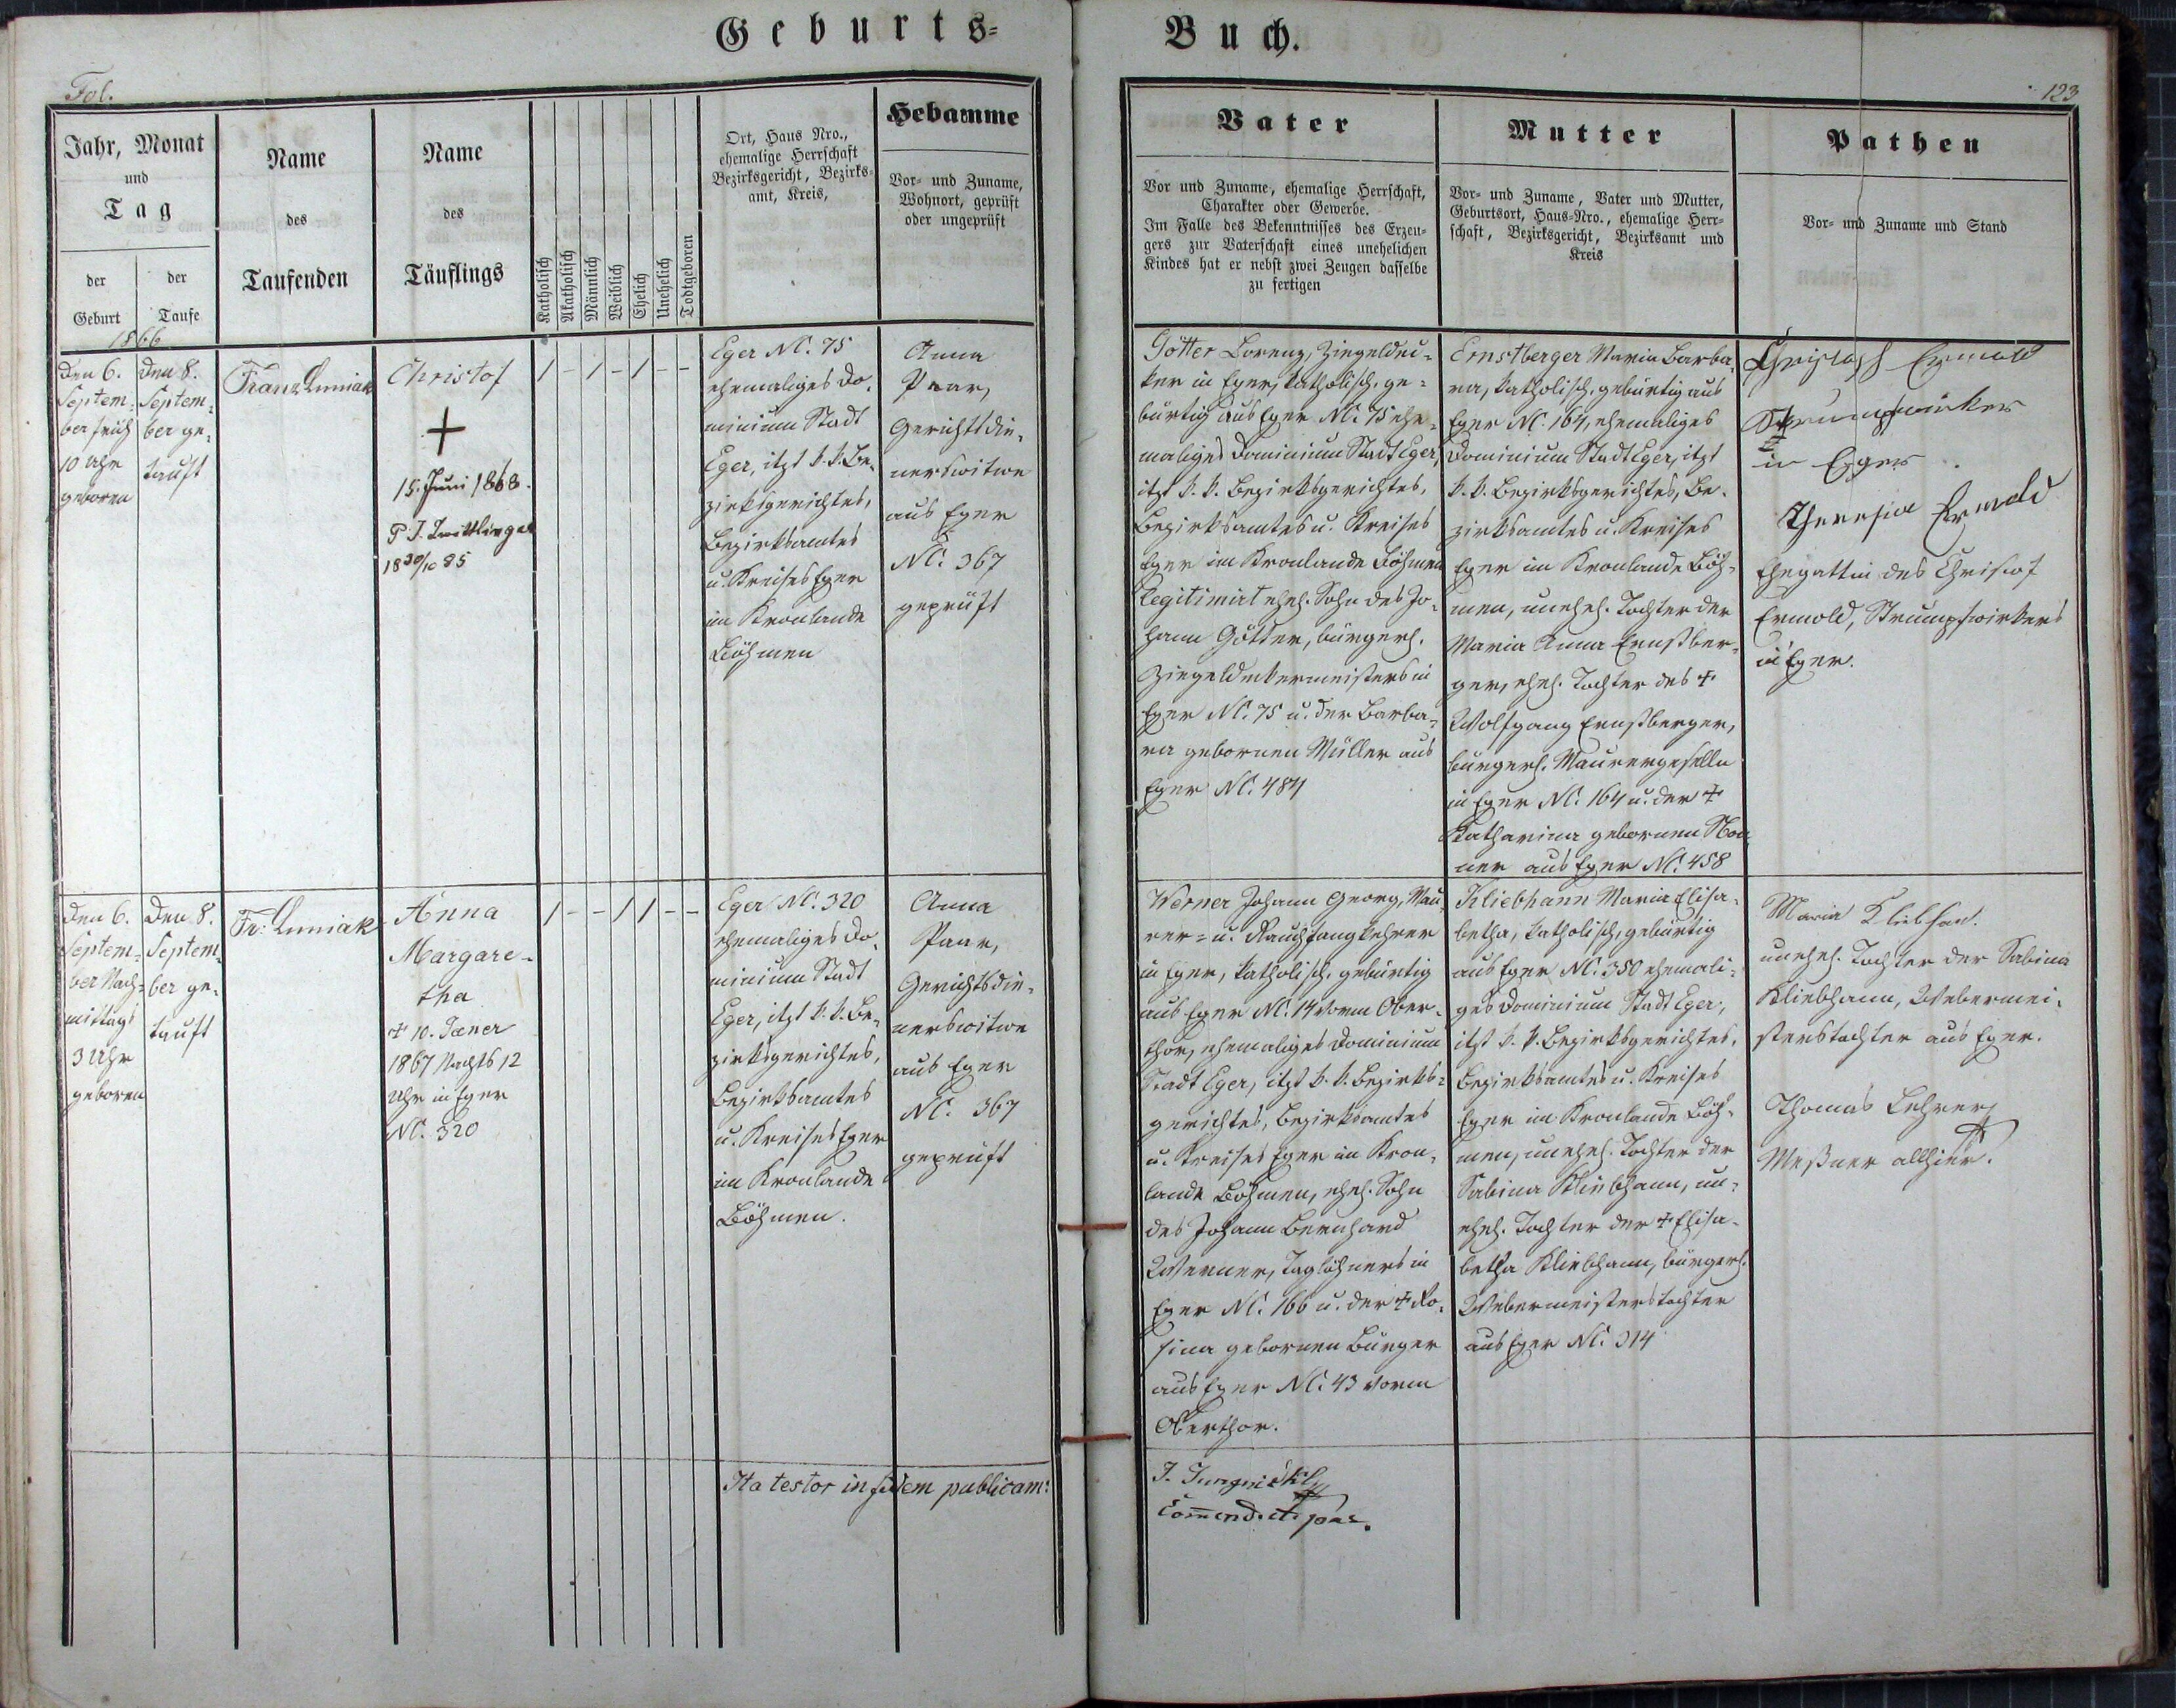 Geburts-
Buch.
Fol.
123
Jahr, Monat
und
Tag
der
Geburt
der
Taufe
1866
Name
des
Taufenden
Name
des
Täuflings
Katholisch
Akatholisch
Männlich
Weiblich
Ehelich
Unehelich
Todtgeboren
Ort, Haus Nro.,
ehemalige Herrschaft
Bezirksgericht, Bezirks-
amt, Kreis,
Hebamme
Vor- und Zuname,
Wohnort, geprüft
oder ungeprüft
Vater
Vor und Zuname, ehemalige Herrschaft,
Charakter oder Gewerbe.
Im Falle des Bekenntnisses des Erzeu-
gers zur Vaterschaft eines unehelichen
Kindes hat er nebst zwei Zeugen dasselbe
zu fertigen
Mutter
Vor- und Zuname, Vater und Mutter,
Geburtsort, Haus-Nro., ehemalige Herr-
schaft, Bezirksgericht, Bezirksamt und
Kreis
Pathen
Vor- und Zuname und Stand
Den 6.
Septem-
ber früh
10 Uhr
geboren
Den 8.
Septem-
ber ge-
tauft
Franz Luniak
Christof
+
15. Juni 1868.
P. J. Zwittlinger
18 30/10 85
/ - / - / - -
Eger NC. 75
ehemaliges Do-
minium Stadt
Eger, itzt k. k. Be-
zirksgerichtes,
Bezirksamtes
u. Kreises Eger
im Kronlande
Böhmen
Anna
Paar,
Gerichtsdie-
nerswitwe
aus Eger
NC. 367
geprüft
Götter Lorenz, Ziegeldec-
ker in Eger, katholisch, ge-
bürtig aus Eger NC. 75 ehe-
maliges Dominium Stadt Eger,
itzt k. k. Bezirksgerichtes,
Bezirksamtes u. Kreises
Eger im Kronlande Böhmen
legitimirt ehel. Sohn des Jo-
hann Götter, bürgerl.
Ziegeldeckermeisters in
Eger NC. 75 u. der Barba-
ra gebornen Müller aus
Eger NC. 484
Ernstberger Maria Barba-
ra, katholisch, gebürtig aus
Eger NC. 164, ehemaliges
Dominium Stadt Eger, itzt
k. k. Bezirksgerichtes, Be-
zirksamtes u. Kreises
Eger im Kronlande Böh-
men, unehel. Tochter der
Maria Anna Ernstber-
ger, ehel. Tochter des +
Wolfgang Ernstberger,
bürgerl. Maurergeselle
in Eger NC. 164 u. der +
Katharina gebornen
ner aus Eger NC. 458
Christoph Ermold
Strumpfwirker
in Eger.
Theresia Ermold
Ehegattin des Christof
Ermold, Strumpfwirkers
in Eger.
Den 6.
Septem-
ber Nach-
mittags
3 Uhr
geboren
Den 8.
Septem-
ber ge-
tauft
Fr. Luniak
Anna
Margare-
tha
+ 10. Jæner
1867 Nachts 12
Uhr in Eger
NC. 320
/ - - / / - -
Eger NC. 320
ehemaliges Do-
minium Stadt
Eger, itzt k. k. Be-
zirksgerichtes,
Bezirksamtes
u. Kreises Eger
im Kronlande
Böhmen.
Anna
Paar,
Gerichtsdie-
nerswitwe
aus Eger
NC. 367
geprüft
Werner Johann Georg, Mau-
rer- u. Rauchfangkehrer
in Eger, katholisch, gebürtig
aus Eger NC. 14 vorm Ober-
thor, ehemaliges Dominium
Stadt Eger, itzt k. k. Bezirks-
gerichtes, Bezirksamtes
u. Kreises Eger im Kron-
lande Böhmen, ehel. Sohn
des Johann Bernhard
Werner, Taglöhners in
Eger NC. 166 u. der + Ro-
sina gebornen Burger
aus Eger NC. 43 vorm
Oberthor.
Kliebhann Maria Elisa-
betha, katholisch, gebürtig
aus Eger NC. 350 ehemali-
ges Dominium Stadt Eger,
itzt k. k. Bezirksgerichtes,
Bezirksamtes u. Kreises
Eger im Kronlande Böh-
men, unehel. Tochter der
Sabina Kliebhann, un-
ehel. Tochter der + Elisa-
betha Kliebhann, bürgerl.
Webermeisterstochter
aus Eger NC. 314
Maria Kliebhan.
unehel. Tochter der Sabina
Kliebhann, Webermei-
sterstochter aus Eger.
Thomas Lehrer
Meßner allhier.
Ita testor in fidem publicam:
Com̄end. et par.